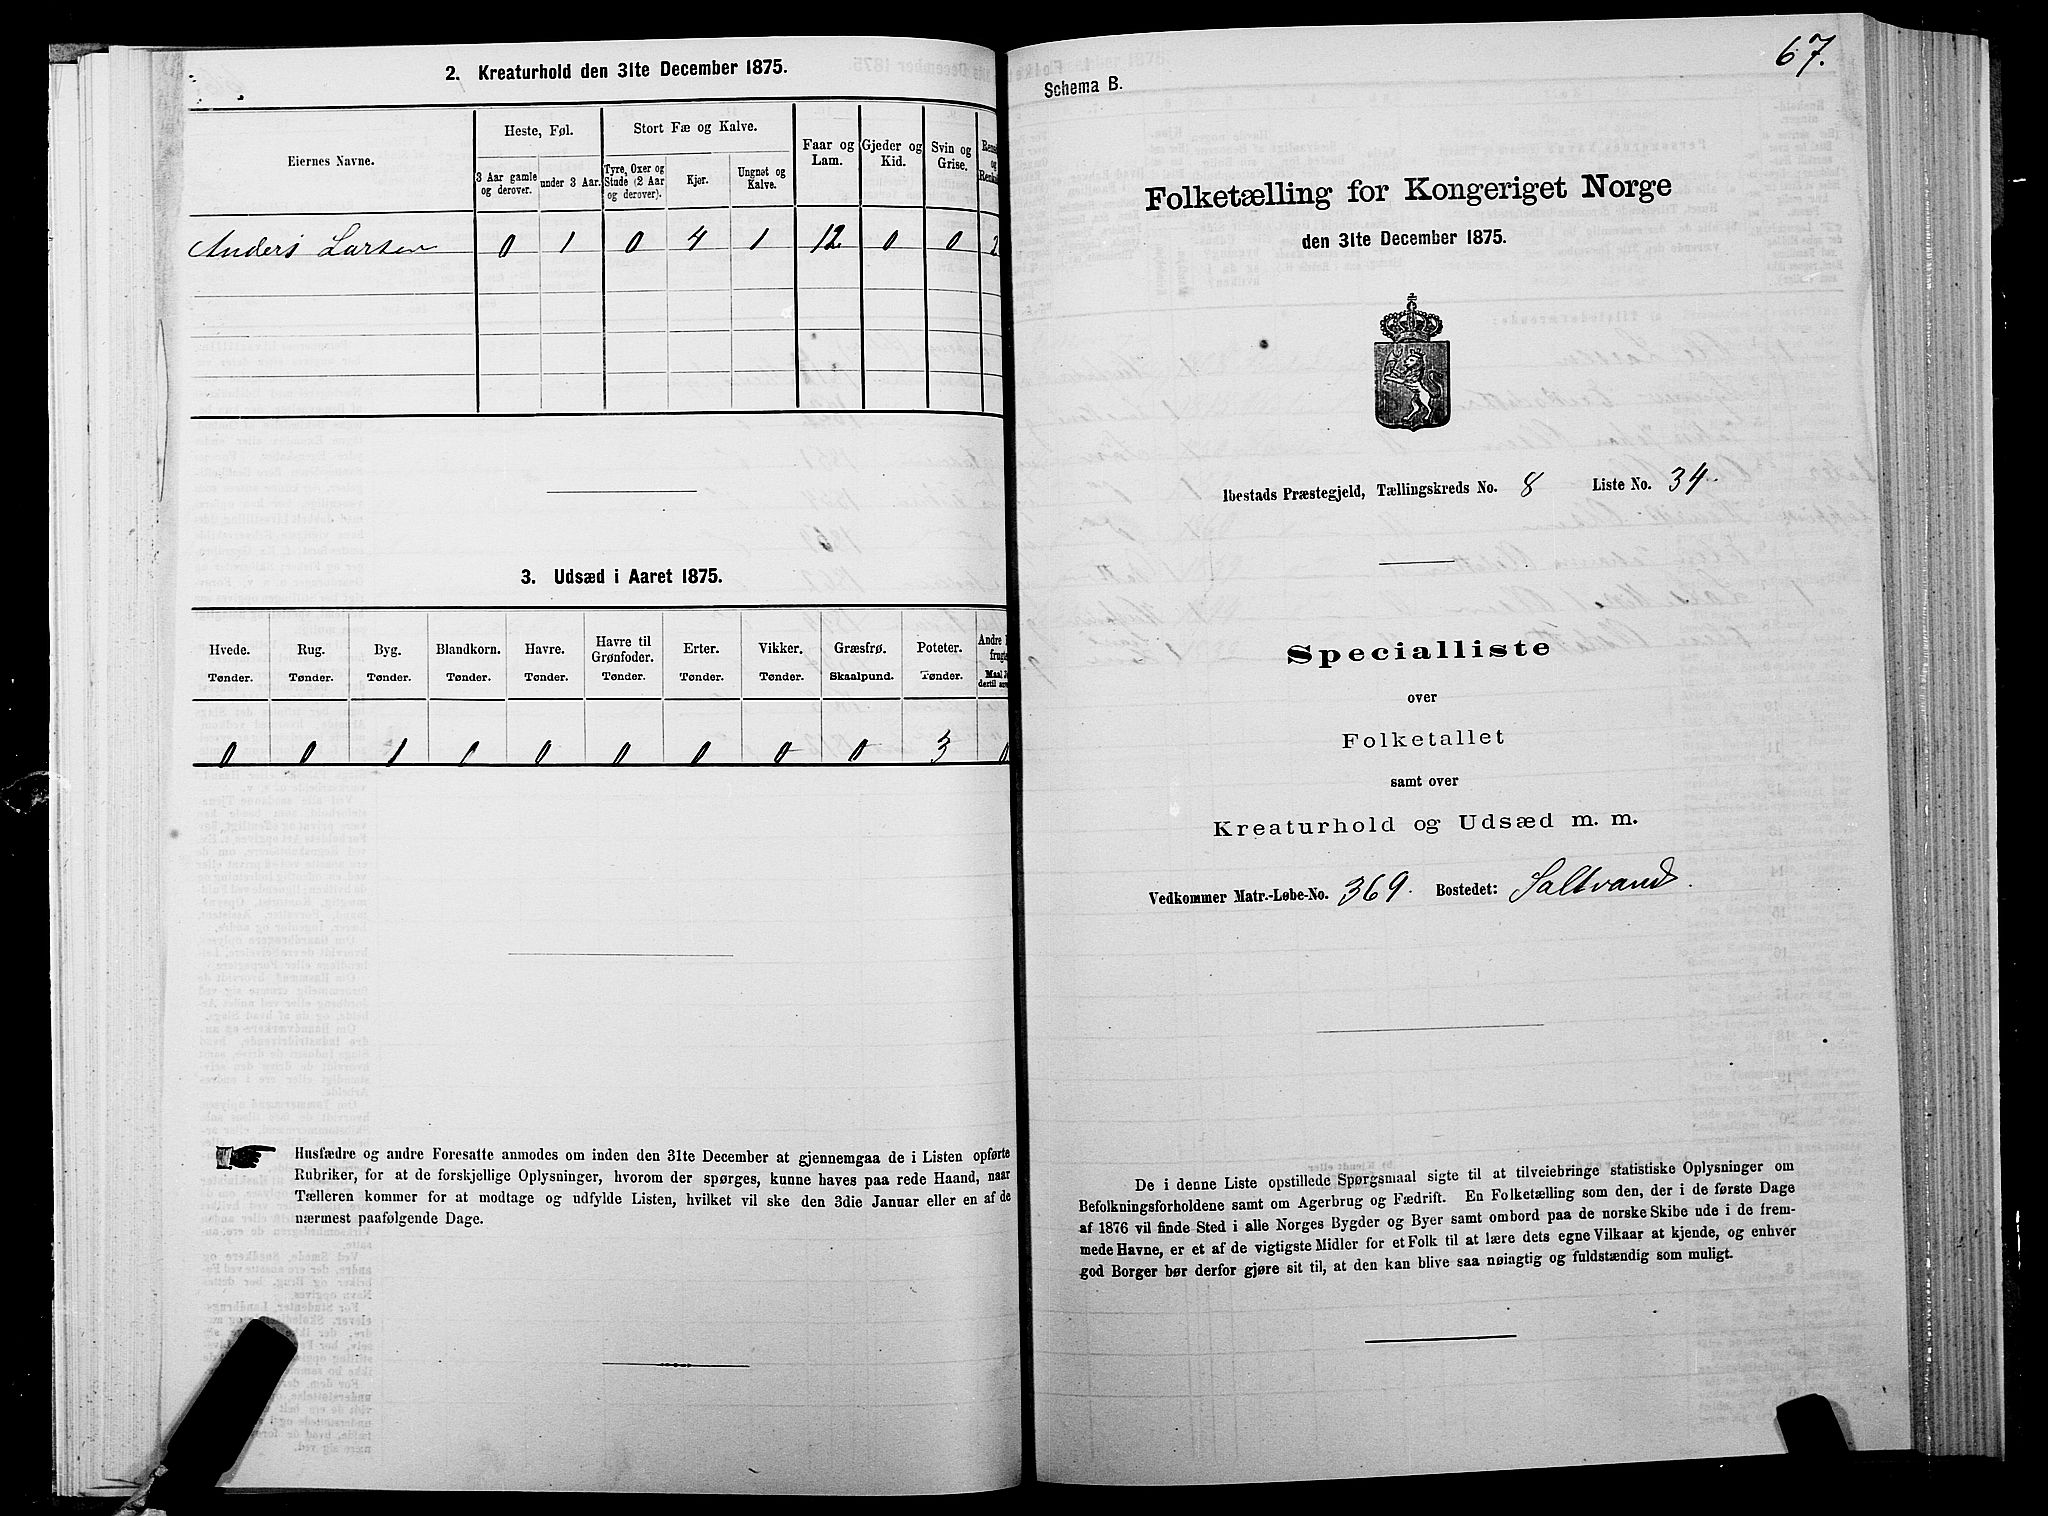 2. Kreaturhold den 31te December 1875.
Eiernes Navne.
Heste, Føl.
Stort Fæ og Kalve.
Faar og Lam.
Gjeder og Kid.
Svin og Grise.
3 Aar gamle og derover.
under 3 Aar.
Tyre, Oxer og Stude (2 Aar og derover).
Kjør.
Ungnøt og Kalve.
Anders Larsen 0 1 0 4 1 12 0 0 2
3. Udsæd i Aaret 1875.
Hvede. Rug. Byg. Blandkorn. Havre. Havre til Grønfoder. Erter. Vikker. Græsfrø. Poteter. Andre
Tønder. Tønder. Tønder. Tønder. Tønder. Tønder. Tønder. Tønder. Skaalpund. Tønder.
0 0 1 0 0 0 0 0 0 3 0
Husfædre og andre Foresatte anmodes om inden den 31te December at gjennemgaa de i Listen opførte
Rubriker, for at de forskjellige Oplysninger, hvorom der spørges, kunne haves paa rede Haand, naar
Tælleren kommer for at modtage og udfylde Listen, hvilket vil ske den 3die Januar eller en af de
nærmest paafølgende Dage.
67.
Schema B.
Folketælling for Kongeriget Norge
den 31te December 1875.
Ibestads Præstegjeld, Tællingskreds No. 8 Liste No. 34.
Specialliste
over
Folketallet
samt over
Kreaturhold og Udsæd m. m.
Vedkommer Matr.-Løbe-No. 369. Bostedet: Saltvand.
De i denne Liste opstillede Spørgsmaal sigte til at tilveiebringe statistiske Oplysninger om
Befolkningsforholdene samt om Agerbrug og Fædrift. En Folketælling som den, der i de første Dage
af 1876 vil finde Sted i alle Norges Bygder og Byer samt ombord paa de norske Skibe ude i de frem-
mede Havne, er et af de vigtigste Midler for et Folk til at lære dets egne Vilkaar at kjende, og enhver
god Borger bør derfor gjøre sit til, at den kan blive saa nøiagtig og fuldstændig som muligt.